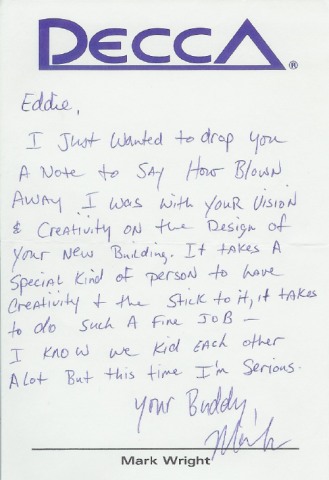 DECCA®
Eddie,
I Just Wanted to drop you
A Note to SAY How BLOWN
AWAY I was with YOUR VISION
& Creativity on the Design of
your New Building. It takes A
Special Kind of person to have
Creativity + the Stick to it, it takes
to do such A Fine JOB —
I KNOW we Kid EACH other
Alot But this time I'm Serious.
Your Buddy,
Mark
Mark Wright